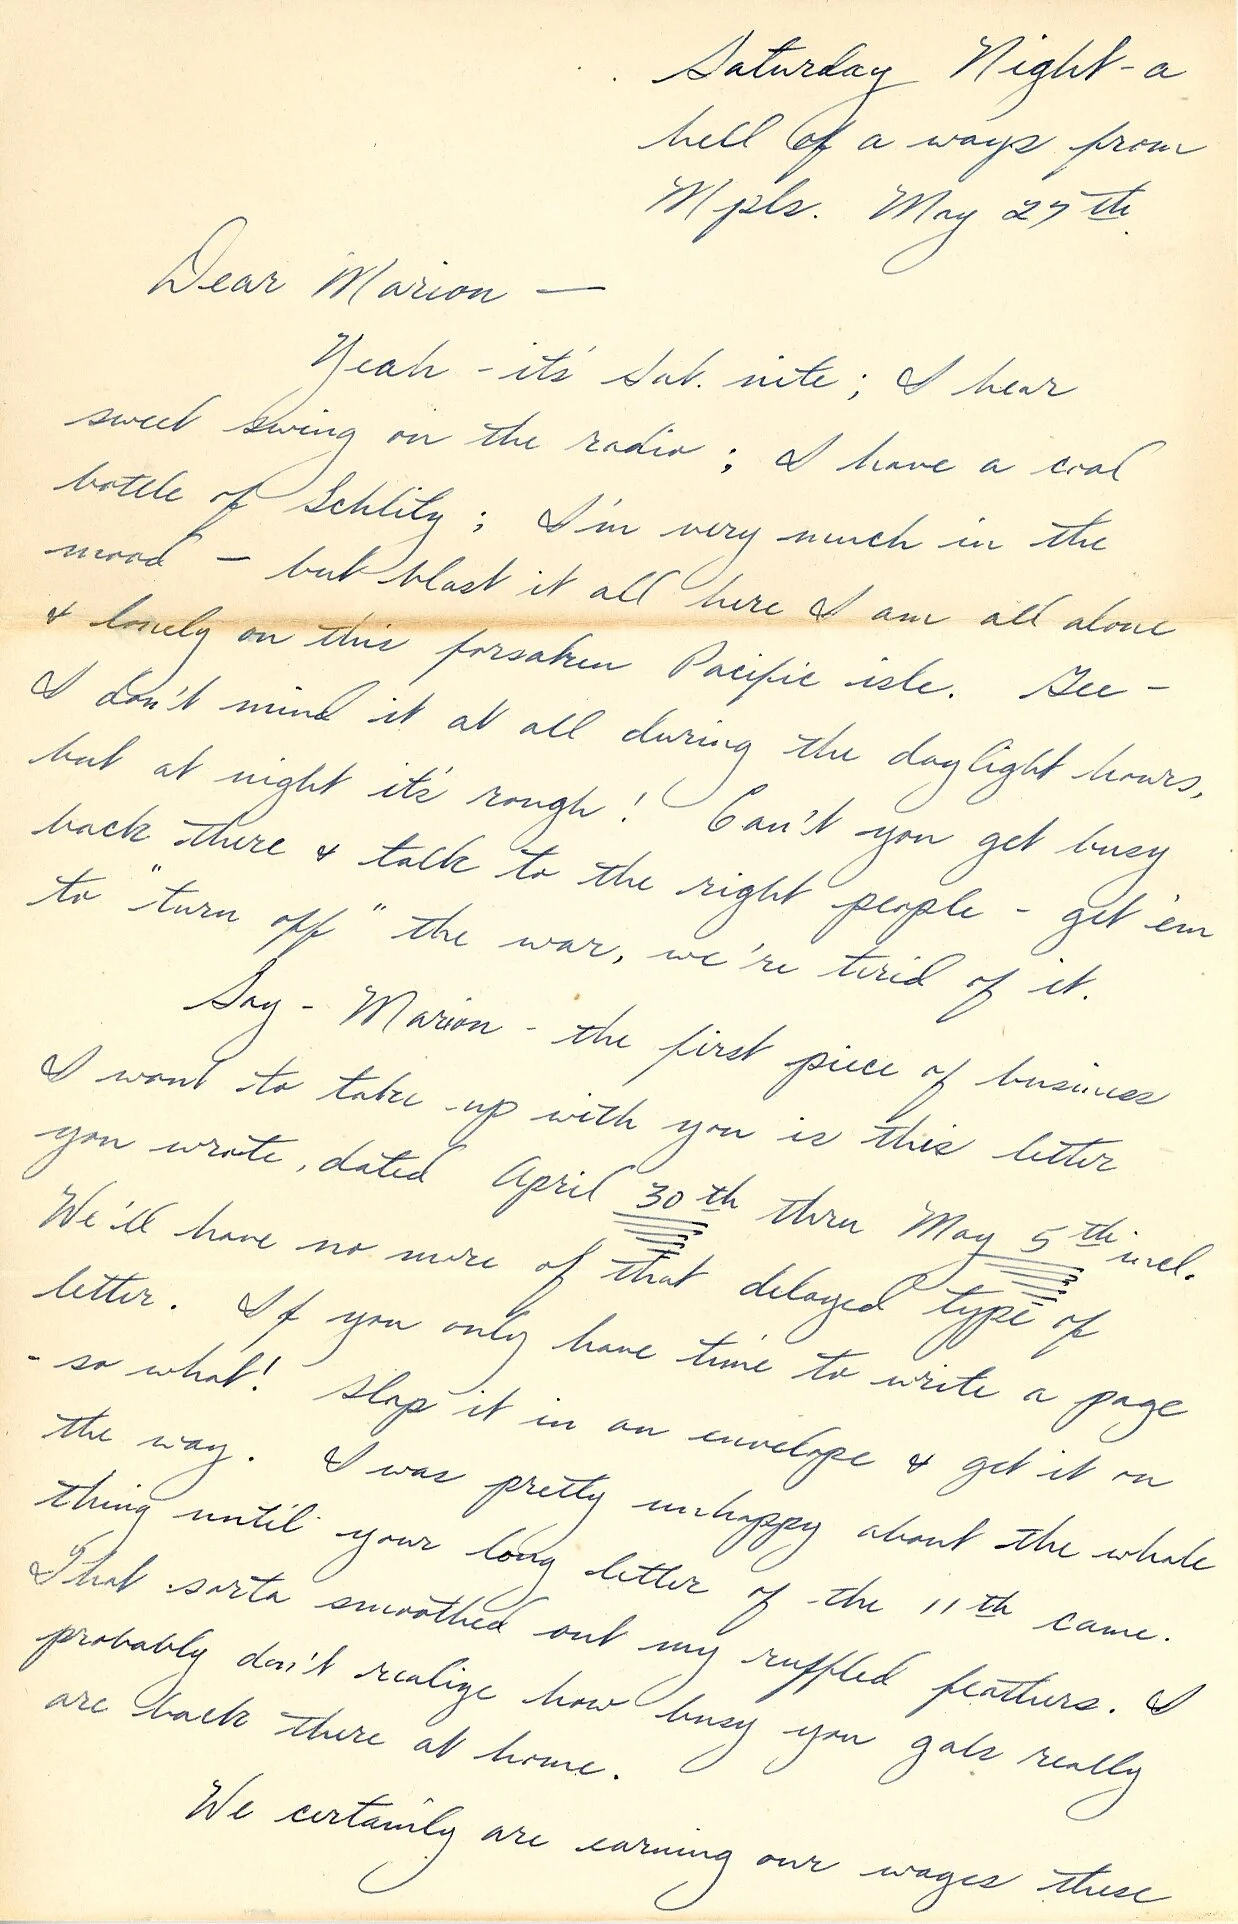 Saturday Night - a
hell of a ways from
Mpls. May 27th.
Dear Marion —
Yeah - it's Sat. nite; I hear
sweet swing on the radio; I have a cool
bottle of Schlitz; I'm very much in the
mood — but blast it all here I am all alone
& lonely on this forsaken Pacific isle. Gee -
I don't mind it at all during the daylight hours,
but at night it's rough! Can't you get busy
back there & talk to the right people - get 'em
to "turn off" the war, we're tired of it.
Say - Marion - the first piece of business
I want to take up with you is this letter
you wrote, dated April 30th thru May 5th incl.
We'll have no more of that delayed type of
letter. If you only have time to write a page
- so what! Slap it in an envelope & get it on
the way. I was pretty unhappy about the whole
thing until your long letter of the 11th came.
That sorta smoothed out my ruffled feathers. I
probably don't realize how busy you gals really
are back there at home.
We certainly are earning our wages these